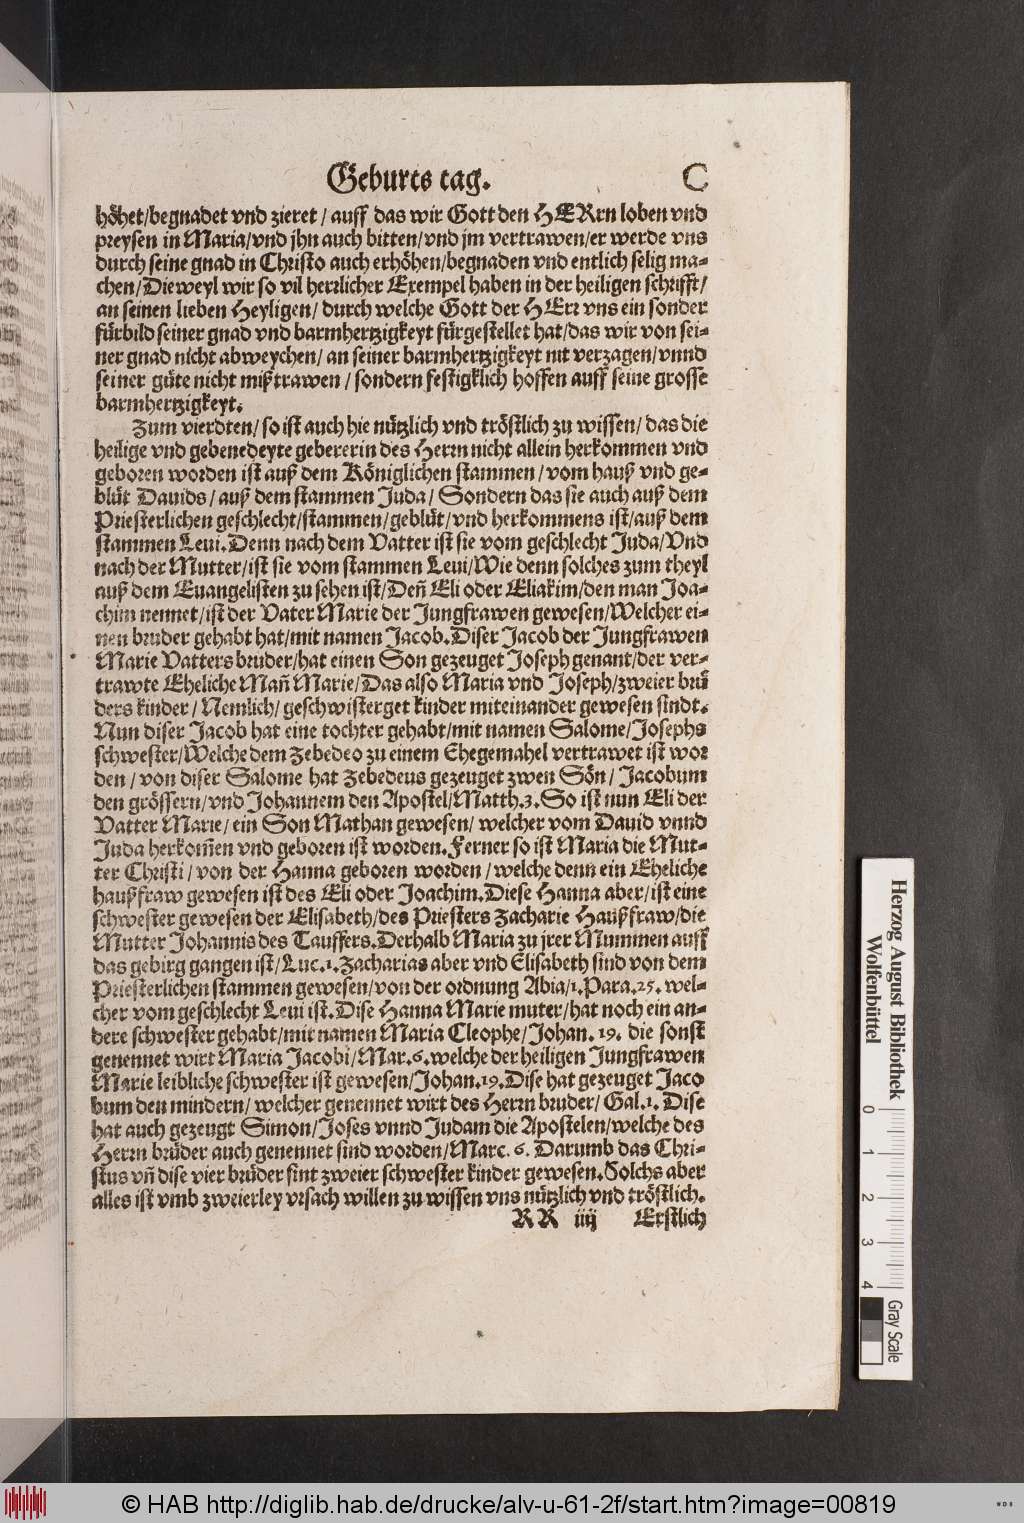 Geburts tag. C
höhet/begnadet vnd zieret / auff das wir Gott den HERrn loben vnd
preysen in Maria/vnd jhn auch bitten/vnd jm vertrawen/er werde vns
durch seine gnad in Christo auch erhöhen/begnaden vnd entlich selig ma-
chen/Dieweyl wir so vil herrlicher Exempel haben in der heiligen schrifft/
an seinen lieben Heyligen/ durch welche Gott der HErr vns ein sonder
fürbild seiner gnad vnd barmhertzigkeyt fürgestellet hat/das wir von sei-
ner gnad nicht abweychen/ an seiner barmhertzigkeyt nit verzagen/vnnd
seiner güte nicht mißtrawen / sondern festigklich hoffen auff seine grosse
barmhertzigkeyt.
Zum vierdten/ so ist auch hie nützlich vnd tröstlich zu wissen/ das die
heilige vnd gebenedeyte gebererin des Herrn nicht allein herkommen vnd
geboren worden ist auß dem Königlichen stammen / vom hauß vnd ge-
blüt Dauids / auß dem stammen Juda/ Sondern das sie auch auß dem
Priesterlichen geschlecht/stammen/geblüt/vnd herkommens ist/auß dem
stammen Leui. Denn nach dem Vatter ist sie vom geschlecht Juda/Vnd
nach der Mutter/ist sie vom stammen Leui/Wie denn solches zum theyl
auß dem Euangelisten zu sehen ist/Deñ Eli oder Eliakim/den man Joa-
chim nennet/ist der Vater Marie der Jungfrawen gewesen/Welcher ei-
nen bruder gehabt hat/mit namen Jacob. Diser Jacob der Jungfrawen
Marie Vatters bruder/hat einen Son gezeuget Joseph genant/der ver-
trawte Eheliche Mañ Marie/Das also Maria vnd Joseph/zweier brü
ders kinder / Nemlich/ geschwisterget kinder miteinander gewesen sindt.
Nun diser Jacob hat eine tochter gehabt/mit namen Salome/Josephs
schwester/Welche dem Zebedeo zu einem Ehegemahel vertrawet ist wor
den / von diser Salome hat Zebedeus gezeuget zwen Sön / Jacobum
den grössern/vnd Johannem den Apostel/Matth.3. So ist nun Eli der
Vatter Marie/ ein Son Mathan gewesen/ welcher vom Dauid vnnd
Juda herkom̃en vnd geboren ist worden. Ferner so ist Maria die Mut-
ter Christi / von der Hanna geboren worden / welche denn ein Eheliche
haußfraw gewesen ist des Eli oder Joachim. Diese Hanna aber/ist eine
schwester gewesen der Elisabeth/des Priesters Zacharie Haußfraw/die
Mutter Johannis des Tauffers. Derhalb Maria zu jrer Mummen auff
das gebirg gangen ist/Luc.1. Zacharias aber vnd Elisabeth sind von dem
Priesterlichen stammen gewesen/von der ordnung Abia/1. Para.25. wel-
cher vom geschlecht Leui ist. Dise Hanna Marie muter/hat noch ein an-
dere schwester gehabt/mit namen Maria Cleophe/Johan. 19. die sonst
genennet wirt Maria Jacobi/Mar.6. welche der heiligen Jungfrawen
Marie leibliche schwester ist gewesen/Johan.19. Dise hat gezeuget Jaco
bum den mindern/ welcher genennet wirt des Herrn bruder/ Gal.1. Dise
hat auch gezeugt Simon/Joses vnnd Judam die Apostelen/welche des
Herrn brüder auch genennet sind worden/Marc. 6. Darumb das Chri-
stus vñ dise vier brüder sint zweier schwester kinder gewesen. Solchs aber
alles ist vmb zweierley vrsach willen zu wissen vns nützlich vnd tröstlich.
RR iiij Erstlich
Herzog August Bibliothek
Wolfenbüttel
0 1 2 3 4
Gray Scale
© HAB http://diglib.hab.de/drucke/alv-u-61-2f/start.htm?image=00819